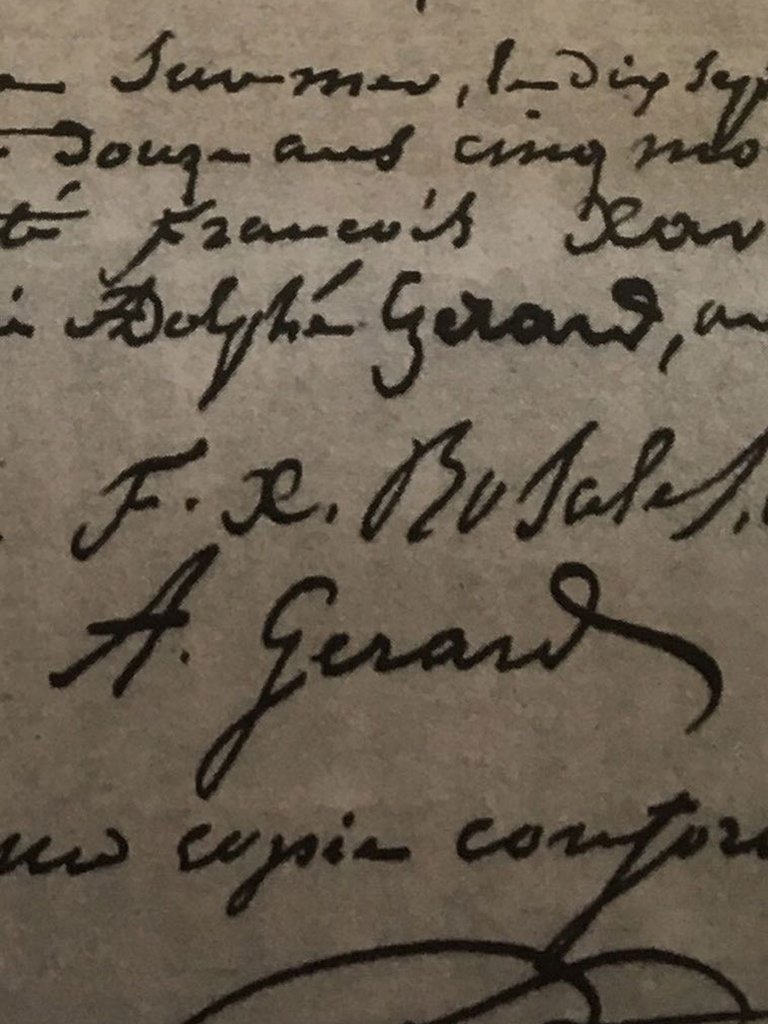 Sur mer, le dix sept
douze ans cinq mo
té François Xav
Adolphe Gerard, au
F. X. Rosales.
A. Gerard
copie confor